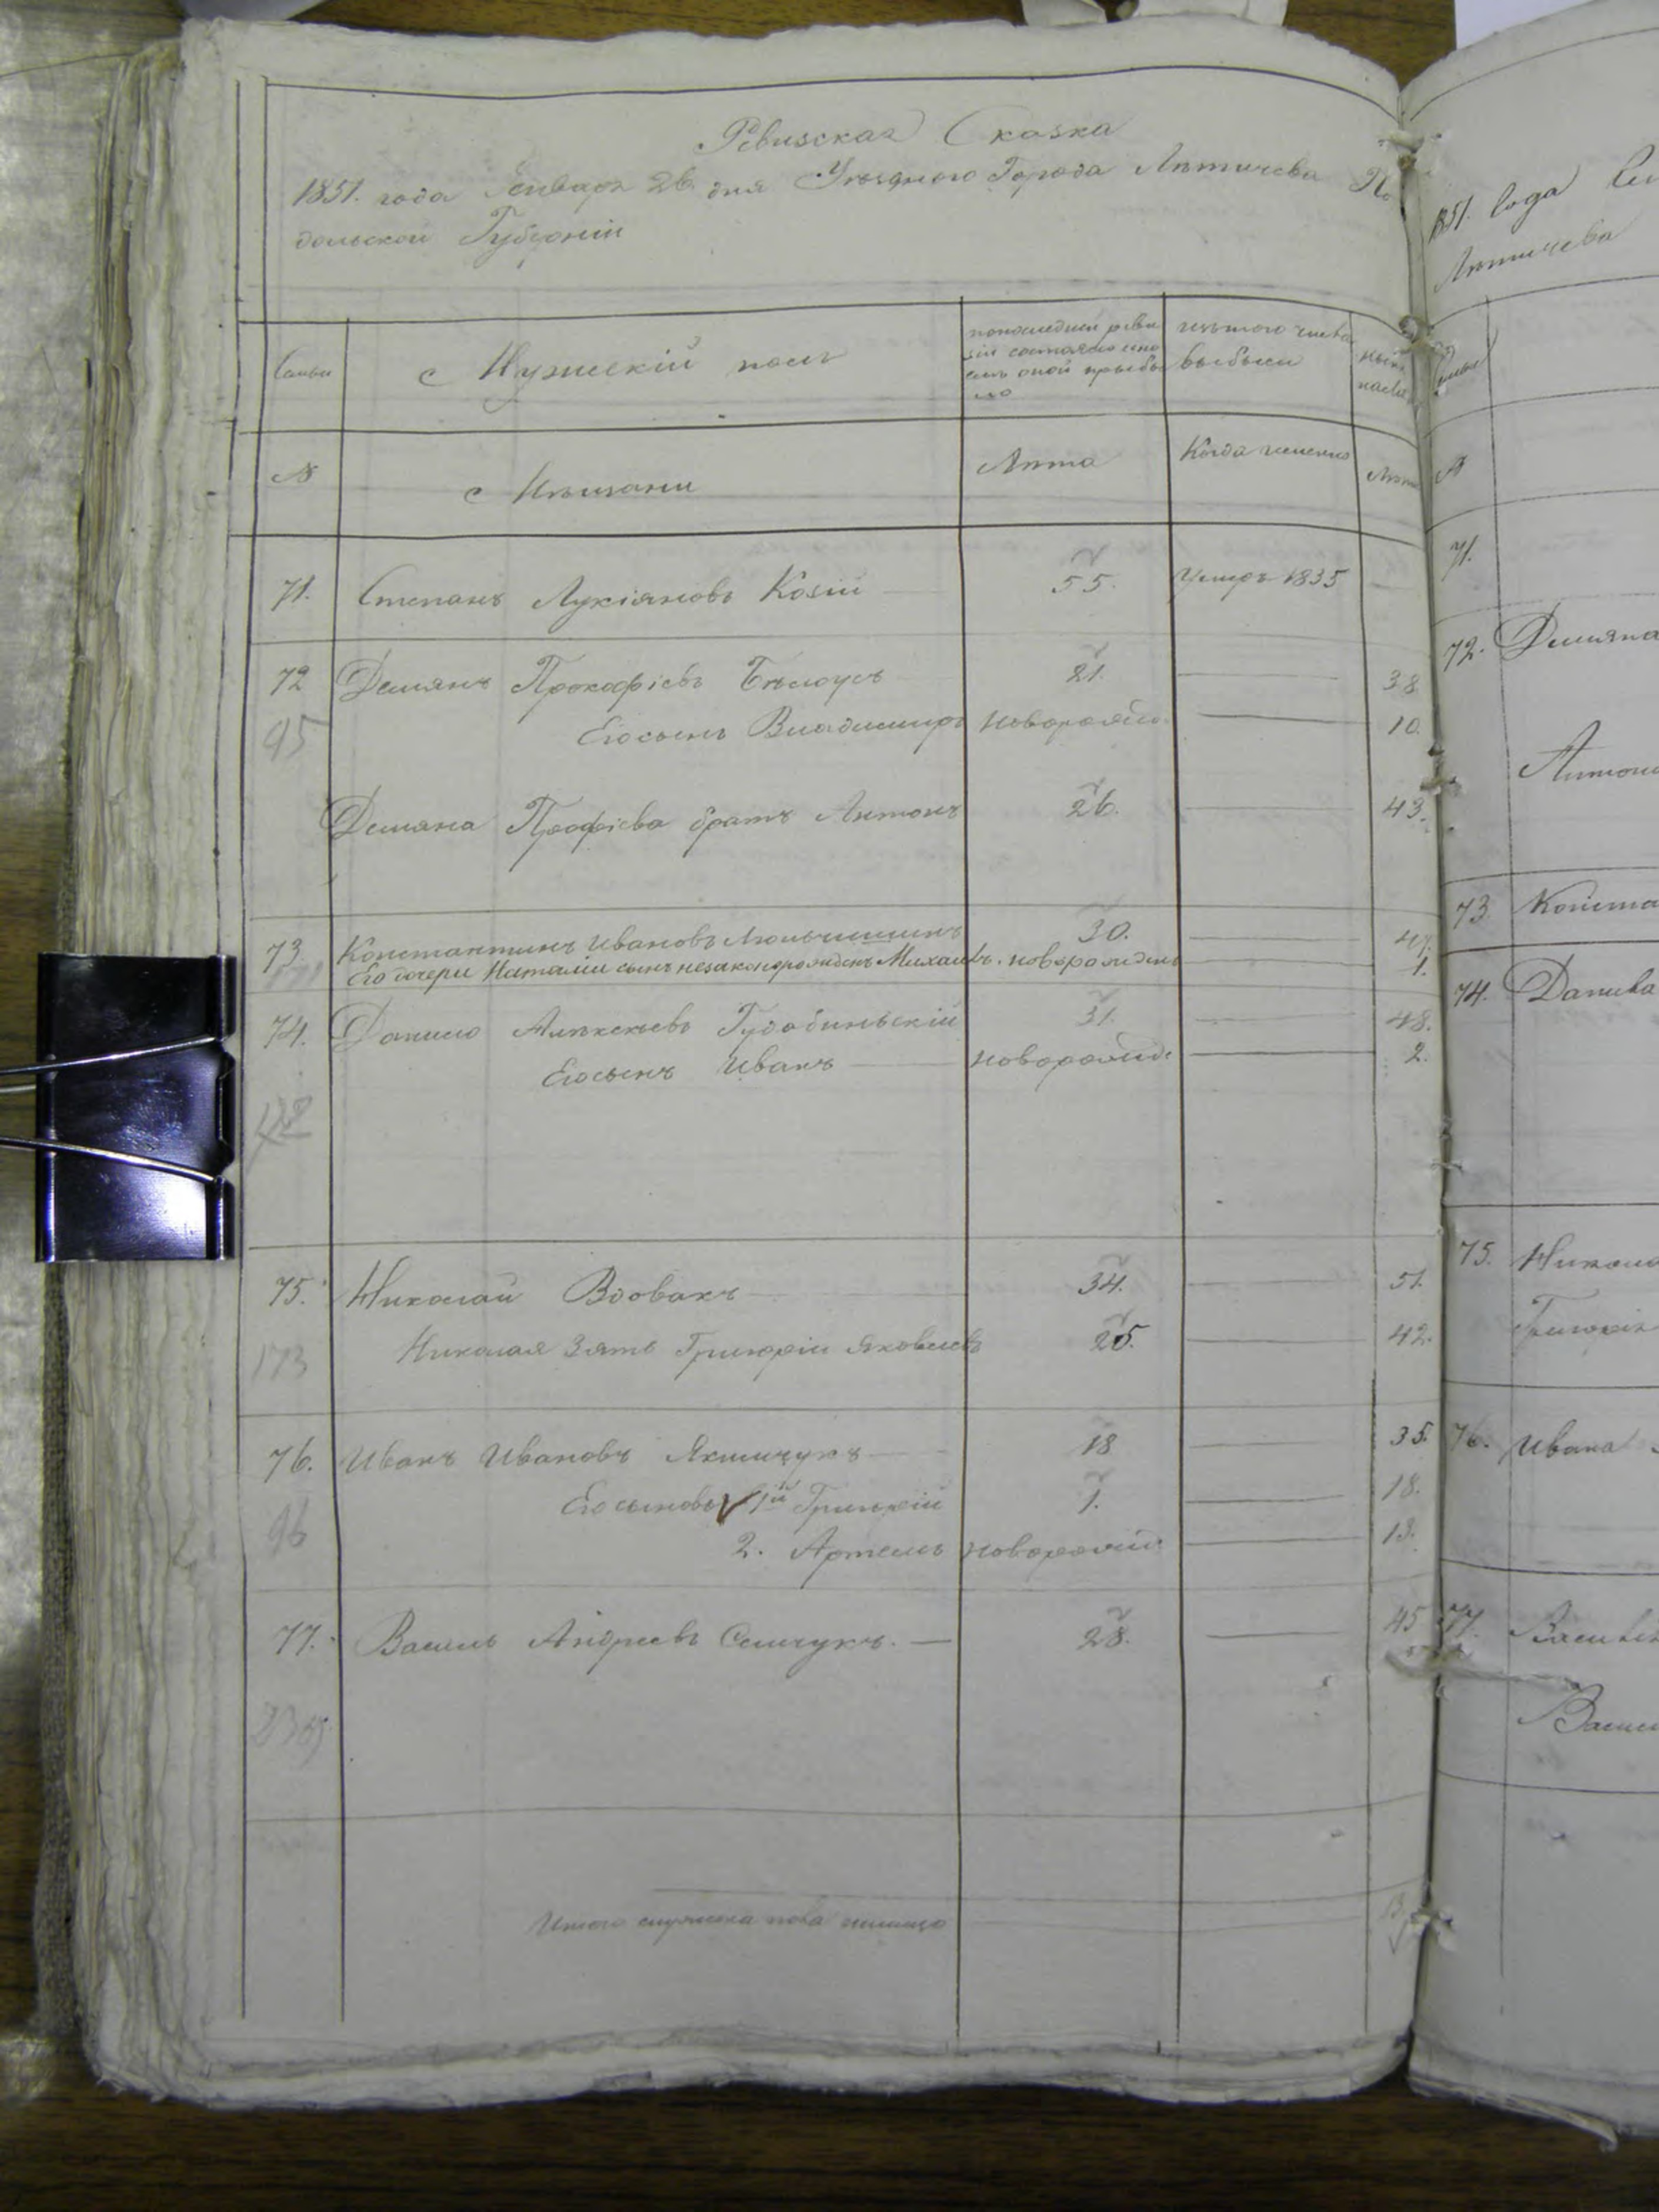 Ревизская Сказка
1851. года Генваря 26 дня Уезднаго Города Летичева По
дольской Губерніи
Семьи
Мужескій полъ
попоследней реви
зіи состояло ипо
слѣ оной прыбы
ло
изътого числа
выбыло
ныне
налицо
№
Мѣщани
Лѣта
Когда именно
Лѣта
71. Степанъ Лукіяновъ Козій 55. Умеръ 1835
72 Демянъ Прокофіевъ Бѣлоусъ 21. 38
95 Его сынъ Владимиръ новорожде. 10.
Демяна Профіева братъ Антонъ 26. 43.
73. Константинъ Ивановъ 30. 47.
Его дочери Наталіи сынъ незаконнорожденъ Михаилъ. новорожденъ 1.
74. Данило Алексѣевъ 31. 48.
Его сынъ Иванъ новорожде 2.
75. Николай Вдовакъ 34. 51.
173 Николая Зять Григорій Яковлевъ 25. 42.
76. Иванъ Ивановъ Якимчукъ 18 35.
96 Его сыновья 1й Григорій 1. 18.
2. Артемъ новорожде 13.
77. Василь Андреевъ Семчукъ. 28. 45
Итого мужеска пола налицо
1851. года
Летичева
№
71.
72. Демяна
73. Конста
74. Данила
75. Никола
Григорія
76. Ивана
77.